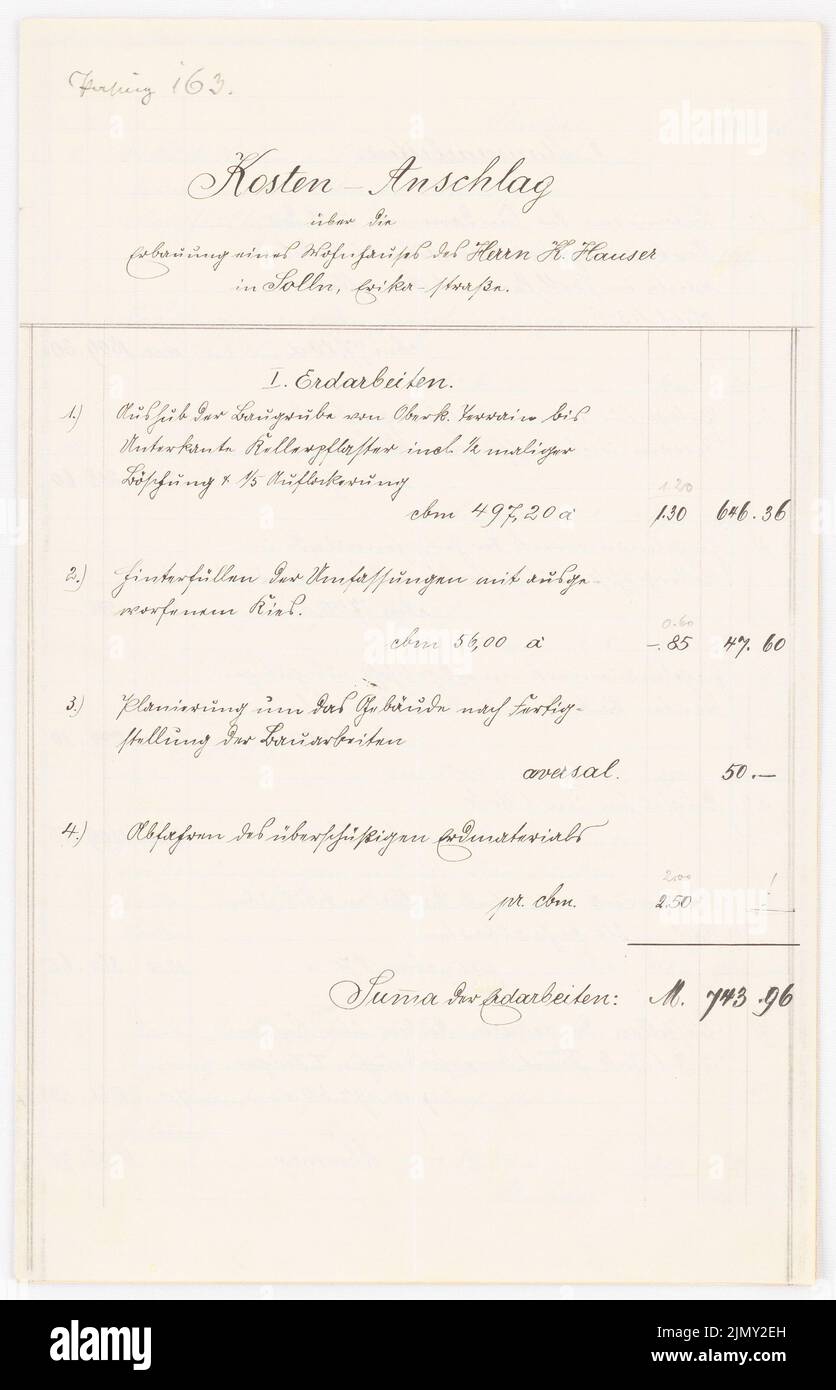 163.
Kosten - Anschlag
über die
Erbauung eines Wohnhauses des Herrn K. Hauser
in Solln, Erika-straße.
I. Erdarbeiten.
1.) Aushub der Baugrube von Oberk. Terrain bis
Unterkante Kellerpflaster incl. ½ maliger
Böschung & 1/5 Auflockerung
1.20
cbm 497,20 à 1.30 646.36
2.) Hinterfüllen der Umfassungen mit ausge-
worfenem Kies.
0.60
cbm 56,00 à -.85 47.60
3.) Planierung um das Gebäude nach Fertig-
stellung der Bauarbeiten
aversal. 50.—
4.) Abfahren des überschüßigen Erdmaterials
2.00
pr. cbm. 2.50 !
Suma der Erdarbeiten: M. 743.96
alamy
Image ID: 2JMY2EH
www.alamy.com